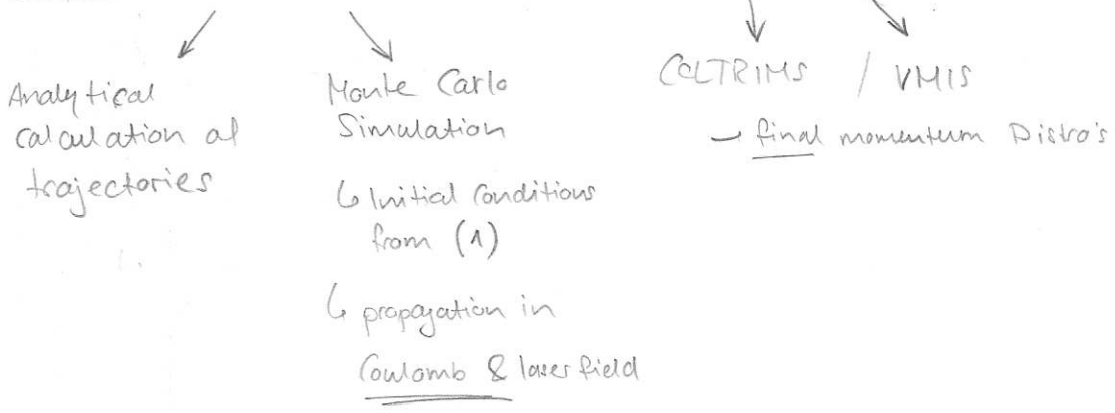 Analytical
calculation of
trajectories
Monte Carlo
Simulation
↳ Initial Conditions
from (1)
↳ propagation in
Coulomb & laser field
COLTRIMS / VMIS
- final momentum Distro's